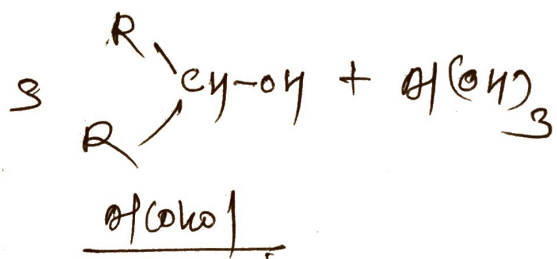 R
3 CH-OH + Al(OH)3
R
Alcohol